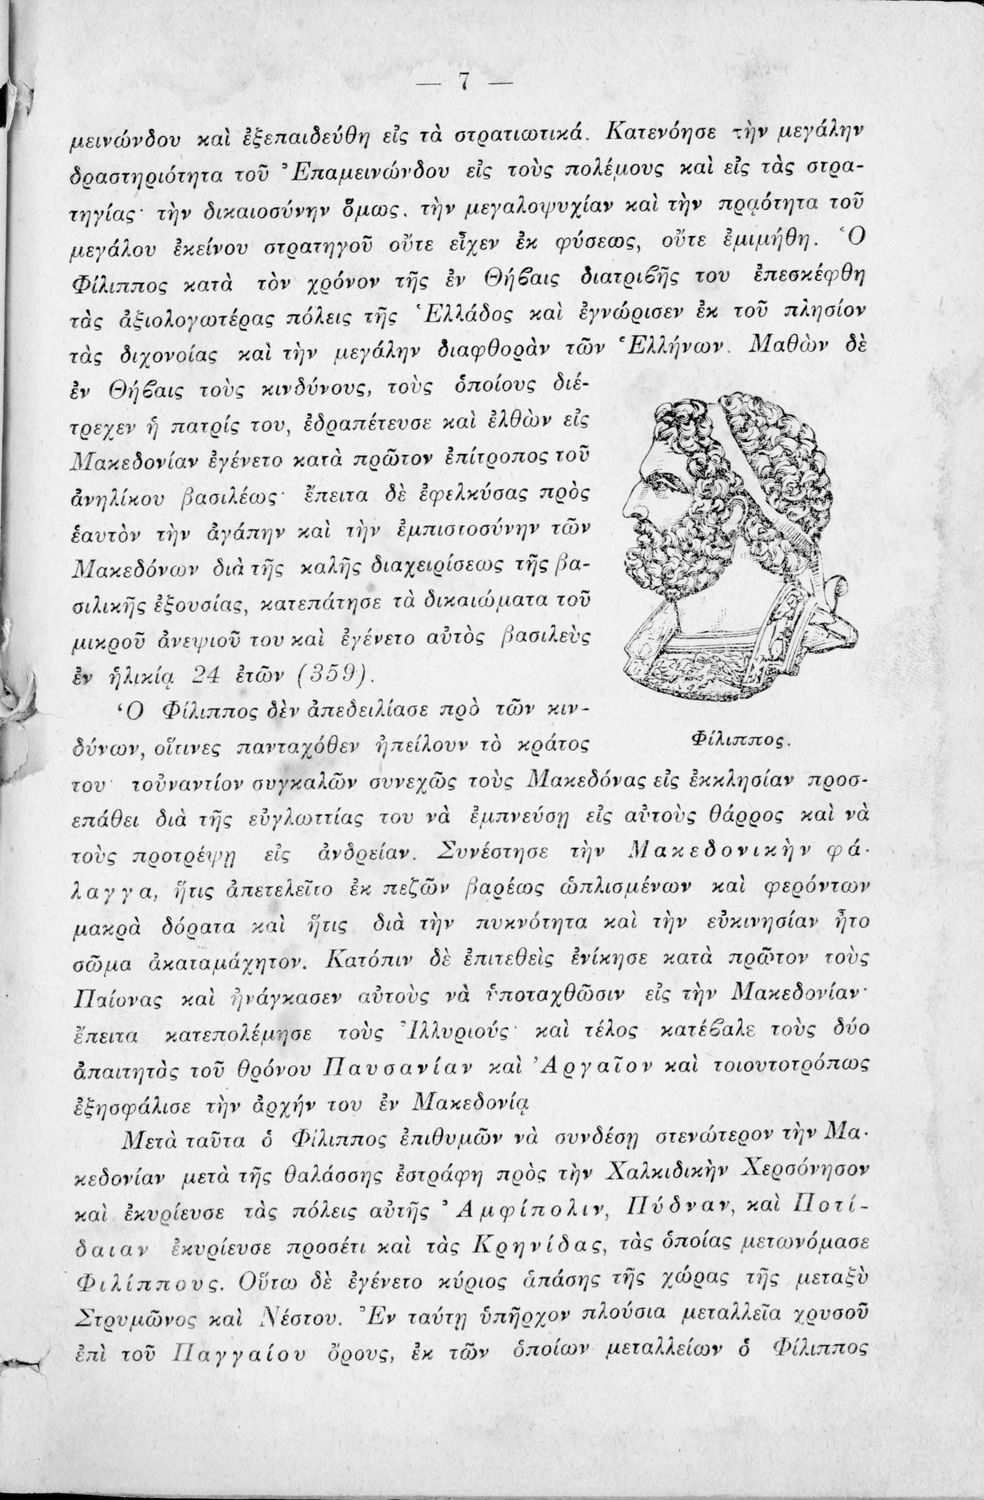 — 7 —
μεινώνδου καὶ ἐξεπαιδεύθη εἰς τὰ στρατιωτικά. Κατενόησε τὴν μεγάλην
δραστηριότητα τοῦ Ἐπαμεινώνδου εἰς τοὺς πολέμους καὶ εἰς τὰς στρα-
τηγίας· τὴν δικαιοσύνην ὅμως, τὴν μεγαλοψυχίαν καὶ τὴν πραότητα τοῦ
μεγάλου ἐκείνου στρατηγοῦ οὔτε εἶχεν ἐκ φύσεως, οὔτε ἐμιμήθη. Ὁ
Φίλιππος κατὰ τὸν χρόνον τῆς ἐν Θήϐαις διατριϐῆς του ἐπεσκέφθη
τὰς ἀξιολογωτέρας πόλεις τῆς Ἑλλάδος καὶ ἐγνώρισεν ἐκ τοῦ πλησίον
τὰς διχονοίας καὶ τὴν μεγάλην διαφθορὰν τῶν Ἑλλήνων. Μαθὼν δὲ
ἐν Θήϐαις τοὺς κινδύνους, τοὺς ὁποίους διέ-
τρεχεν ἡ πατρίς του, ἐδραπέτευσε καὶ ἐλθὼν εἰς
Μακεδονίαν ἐγένετο κατὰ πρῶτον ἐπίτροπος τοῦ
ἀνηλίκου βασιλέως· ἔπειτα δὲ ἐφελκύσας πρὸς
ἑαυτὸν τὴν ἀγάπην καὶ τὴν ἐμπιστοσύνην τῶν
Μακεδόνων διὰ τῆς καλῆς διαχειρίσεως τῆς βα-
σιλικῆς ἐξουσίας, κατεπάτησε τὰ δικαιώματα τοῦ
μικροῦ ἀνεψιοῦ του καὶ ἐγένετο αὐτὸς βασιλεὺς
ἐν ἡλικίᾳ 24 ἐτῶν (359).
Ὁ Φίλιππος δὲν ἀπεδειλίασε πρὸ τῶν κιν-
δύνων, οἵτινες πανταχόθεν ἠπείλουν τὸ κράτος
Φίλιππος.
του· τοὐναντίον συγκαλῶν συνεχῶς τοὺς Μακεδόνας εἰς ἐκκλησίαν προσ-
επάθει διὰ τῆς εὐγλωττίας του νὰ ἐμπνεύσῃ εἰς αὐτοὺς θάρρος καὶ νὰ
τοὺς προτρέψῃ εἰς ἀνδρείαν. Συνέστησε τὴν Μακεδονικὴν φά-
λαγγα, ἥτις ἀπετελεῖτο ἐκ πεζῶν βαρέως ὡπλισμένων καὶ φερόντων
μακρὰ δόρατα καὶ ἥτις διὰ τὴν πυκνότητα καὶ τὴν εὐκινησίαν ἦτο
σῶμα ἀκαταμάχητον. Κατόπιν δὲ ἐπιτεθεὶς ἐνίκησε κατὰ πρῶτον τοὺς
Παίονας καὶ ἠνάγκασεν αὐτοὺς νὰ ὑποταχθῶσιν εἰς τὴν Μακεδονίαν·
ἔπειτα κατεπολέμησε τοὺς Ἰλλυριούς· καὶ τέλος κατέϐαλε τοὺς δύο
ἀπαιτητὰς τοῦ θρόνου Παυσανίαν καὶ Ἀργαῖον καὶ τοιουτοτρόπως
ἐξησφάλισε τὴν ἀρχήν του ἐν Μακεδονίᾳ
Μετὰ ταῦτα ὁ Φίλιππος ἐπιθυμῶν νὰ συνδέσῃ στενώτερον τὴν Μα-
κεδονίαν μετὰ τῆς θαλάσσης ἐστράφη πρὸς τὴν Χαλκιδικὴν Χερσόνησον
καὶ ἐκυρίευσε τὰς πόλεις αὐτῆς Ἀμφίπολιν, Πύδναν, καὶ Ποτί-
δαιαν ἐκυρίευσε προσέτι καὶ τὰς Κρηνίδας, τὰς ὁποίας μετωνόμασε
Φιλίππους. Οὕτω δὲ ἐγένετο κύριος ἁπάσης τῆς χώρας τῆς μεταξὺ
Στρυμῶνος καὶ Νέστου. Ἐν ταύτῃ ὑπῆρχον πλούσια μεταλλεῖα χρυσοῦ
ἐπὶ τοῦ Παγγαίου ὄρους, ἐκ τῶν ὁποίων μεταλλείων ὁ Φίλιππος